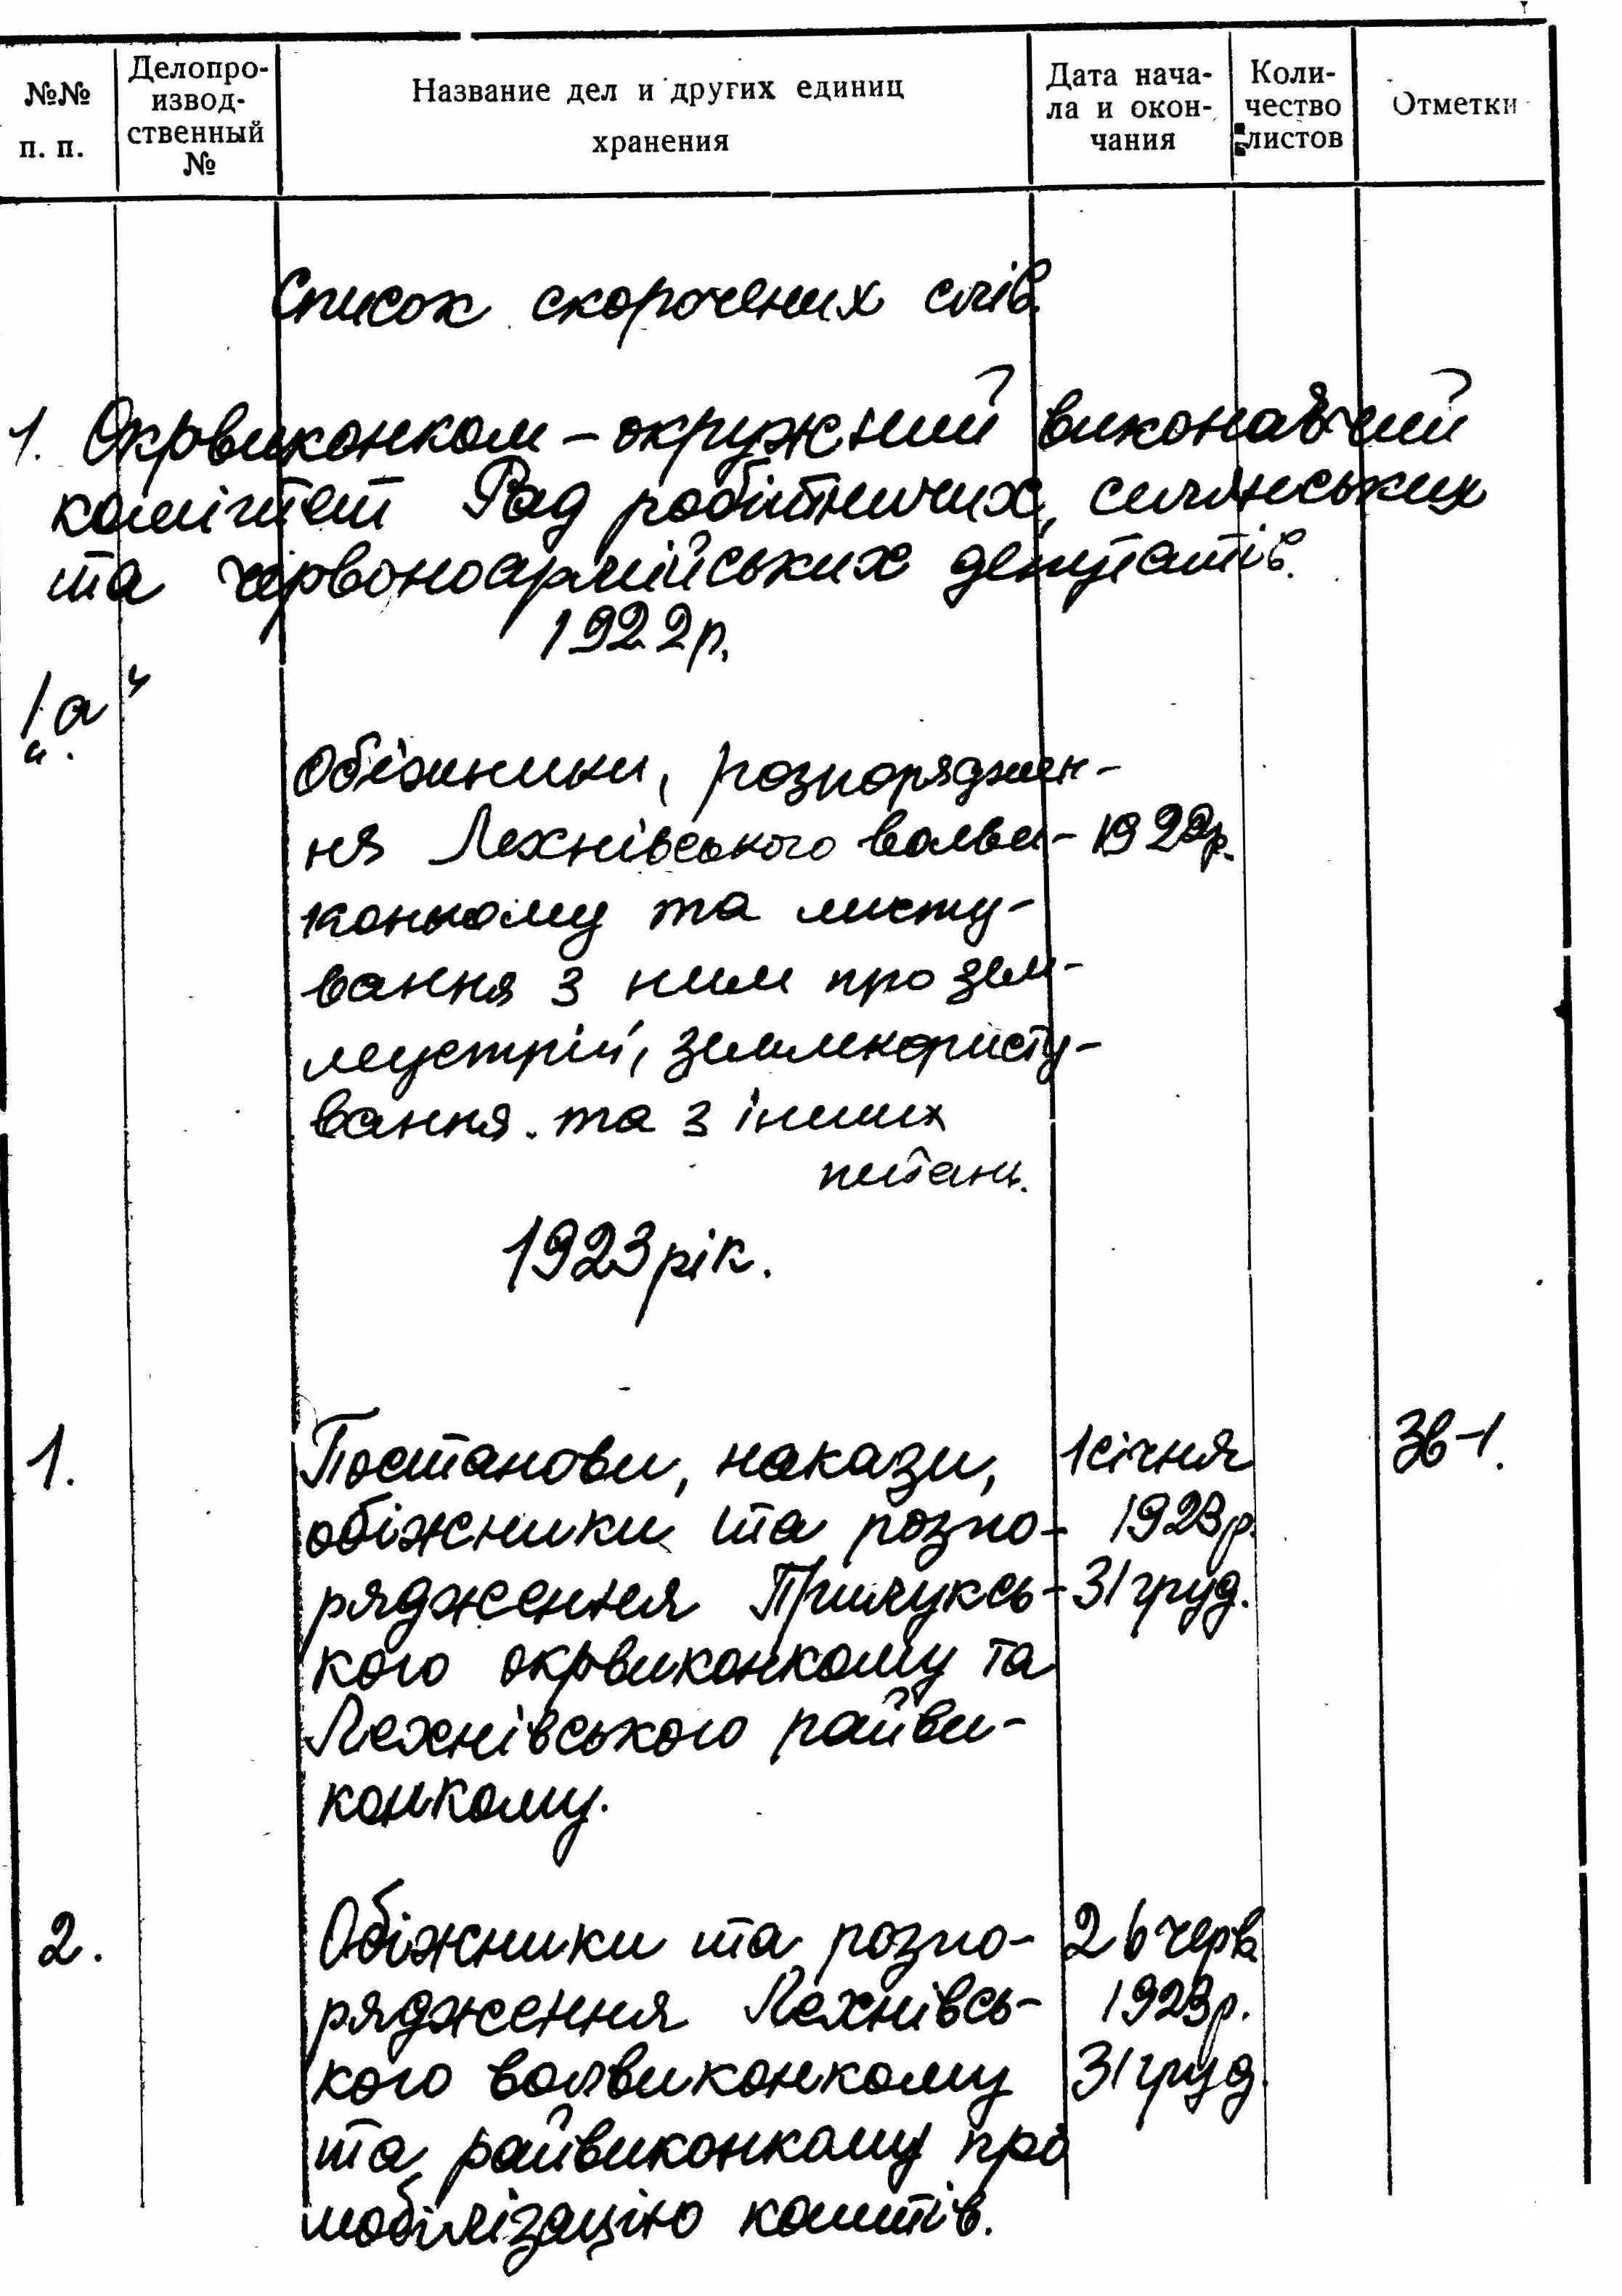 №№ п. п.
Делопро-
извод-
ственный
№
Название дел и других единиц
хранения
Дата нача-
ла и окон-
чания
Коли-
чество
листов
Отметки
Список скорочених слів.
1. Окрвиконком – окружний виконавчий
комітет Рад робітничих, селянських
та червоноармійських депутатів.
1922р.
1„а“
Обіжники, розпоряджен-
ня Лехнівського волви-
1922р.
конкому та листу-
вання з ним про зем-
леустрій, землекористу-
вання та з інших
питань.
1923 рік.
1.
Постанови, накази,
1 січня
Зв-1.
обіжники та розпо-
1923р.
рядження Прилуксь-
31 груд.
кого окрвиконкому та
Лехнівського райви-
конкому.
2.
Обіжники та розпо-
26 черв
рядження Лехнівсь-
1923р.
кого волвиконкому
31 груд.
та райвиконкому про
мобілізацію коштів.